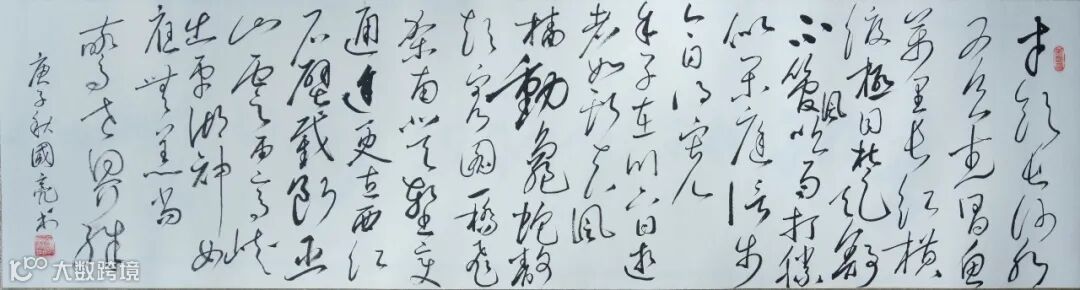 才饮长沙水
又食武昌魚
萬里长江横
渡極目楚天舒
不管風吹浪打勝
似閑庭信步
今日得宽余
子在川上曰逝
者如斯夫風
樯動龜蛇静
起宏圖一橋飞
架南北天堑变
通途更立西江
石壁截断巫
山雲雨高峡
出平湖神女
應無恙當
惊世界殊
庚子秋國亮书
大数跨境